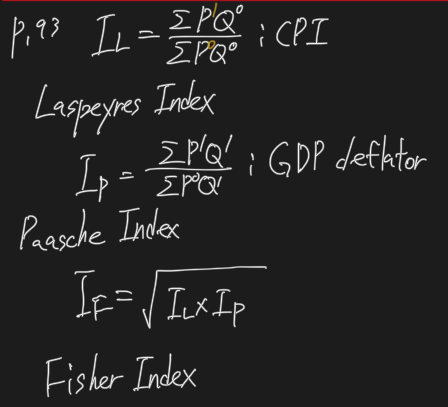 p.93 I_L = ΣP¹Q⁰ / ΣP⁰Q⁰ ; CPI
Laspeyres Index
I_p = ΣP¹Q¹ / ΣP⁰Q¹ ; GDP deflator
Paasche Index
I_F = √(I_L × I_P)
Fisher Index